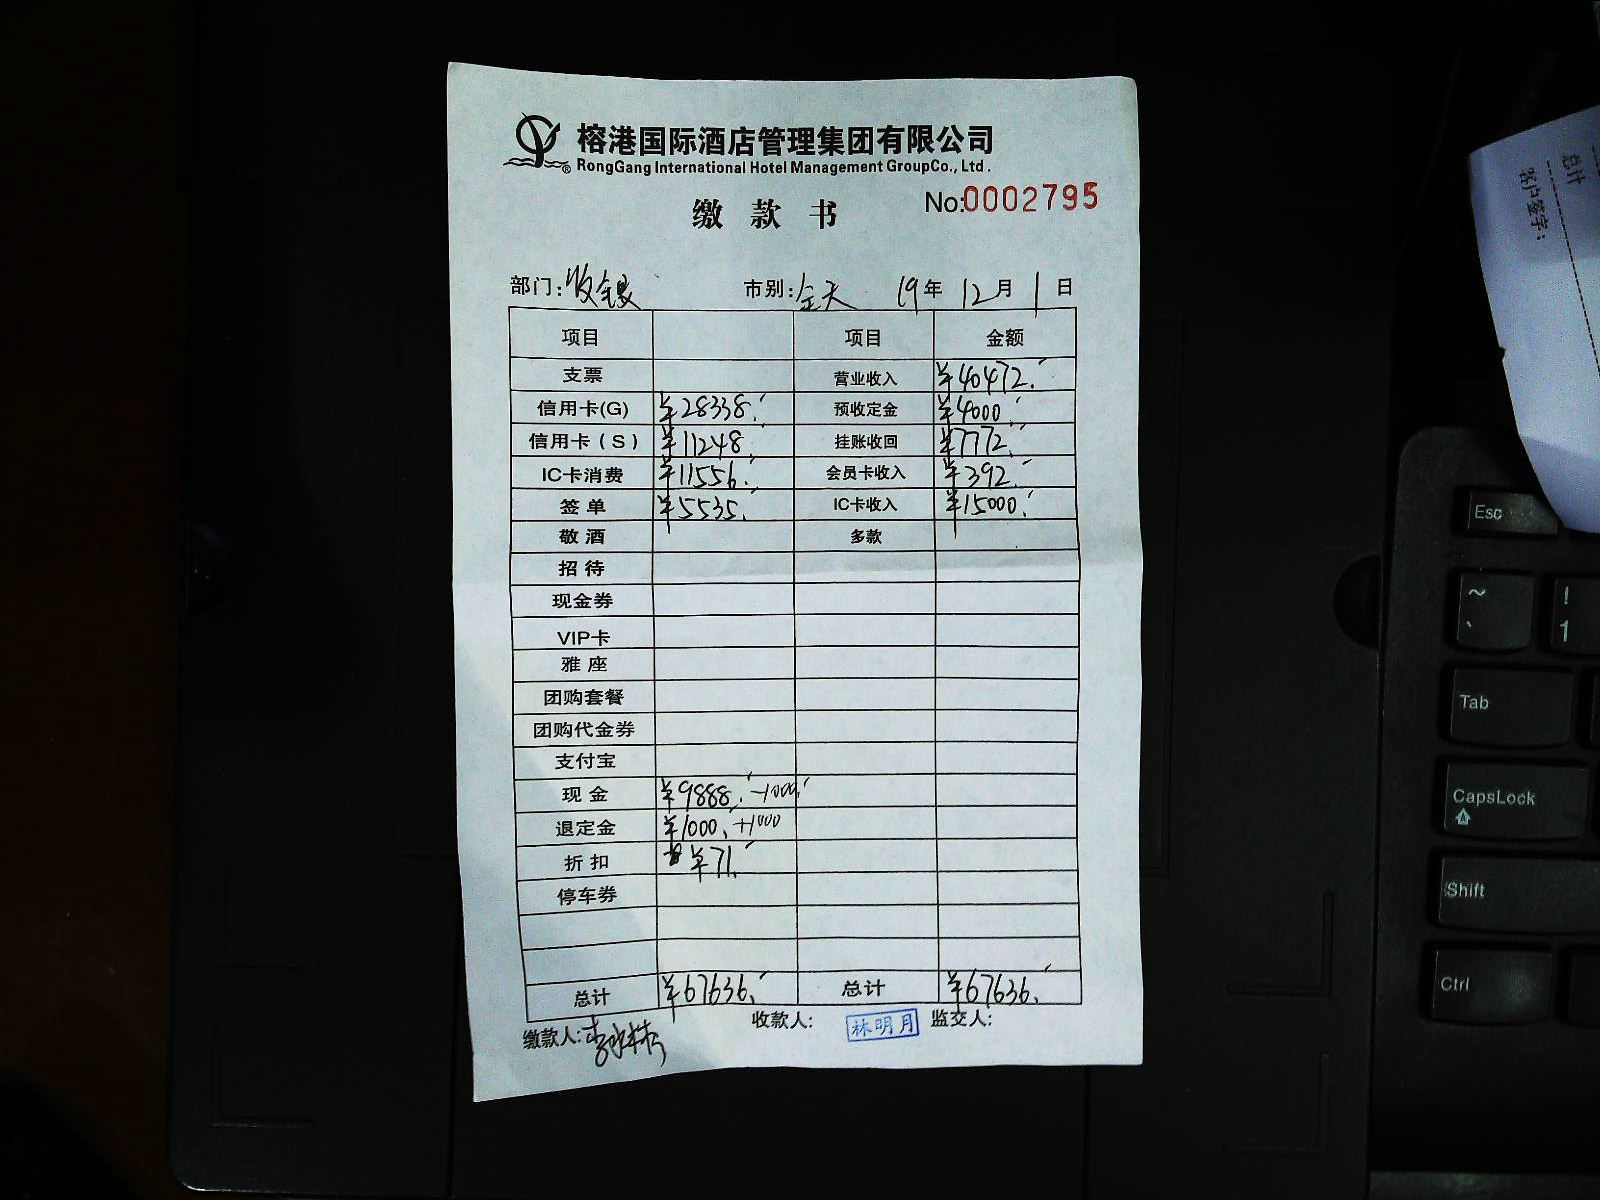 榕港国际酒店管理集团有限公司
RongGang International Hotel Management GroupCo., Ltd.
缴款书 No:0002795
部门:收银 市别:全天 19年12月1日
项目 项目 金额
支票 营业收入 ¥40472.-
信用卡(G) ¥28338.- 预收定金 ¥4000.-
信用卡(S) ¥11248.- 挂账收回 ¥7772.-
IC卡消费 ¥11556.- 会员卡收入 ¥392.-
签单 ¥5535.- IC卡收入 ¥15000.-
敬酒 多款
招待
现金券
VIP卡
雅座
团购套餐
团购代金券
支付宝
现金 ¥9888.- -1000.-
退定金 ¥1000.- +1000
折扣 ¥71.-
停车券
总计 ¥67636.- 总计 ¥67636.-
缴款人: 收款人: 林明月 监交人:
总计
客户签字:
Esc
~
`
!
1
Tab
CapsLock
Shift
Ctrl